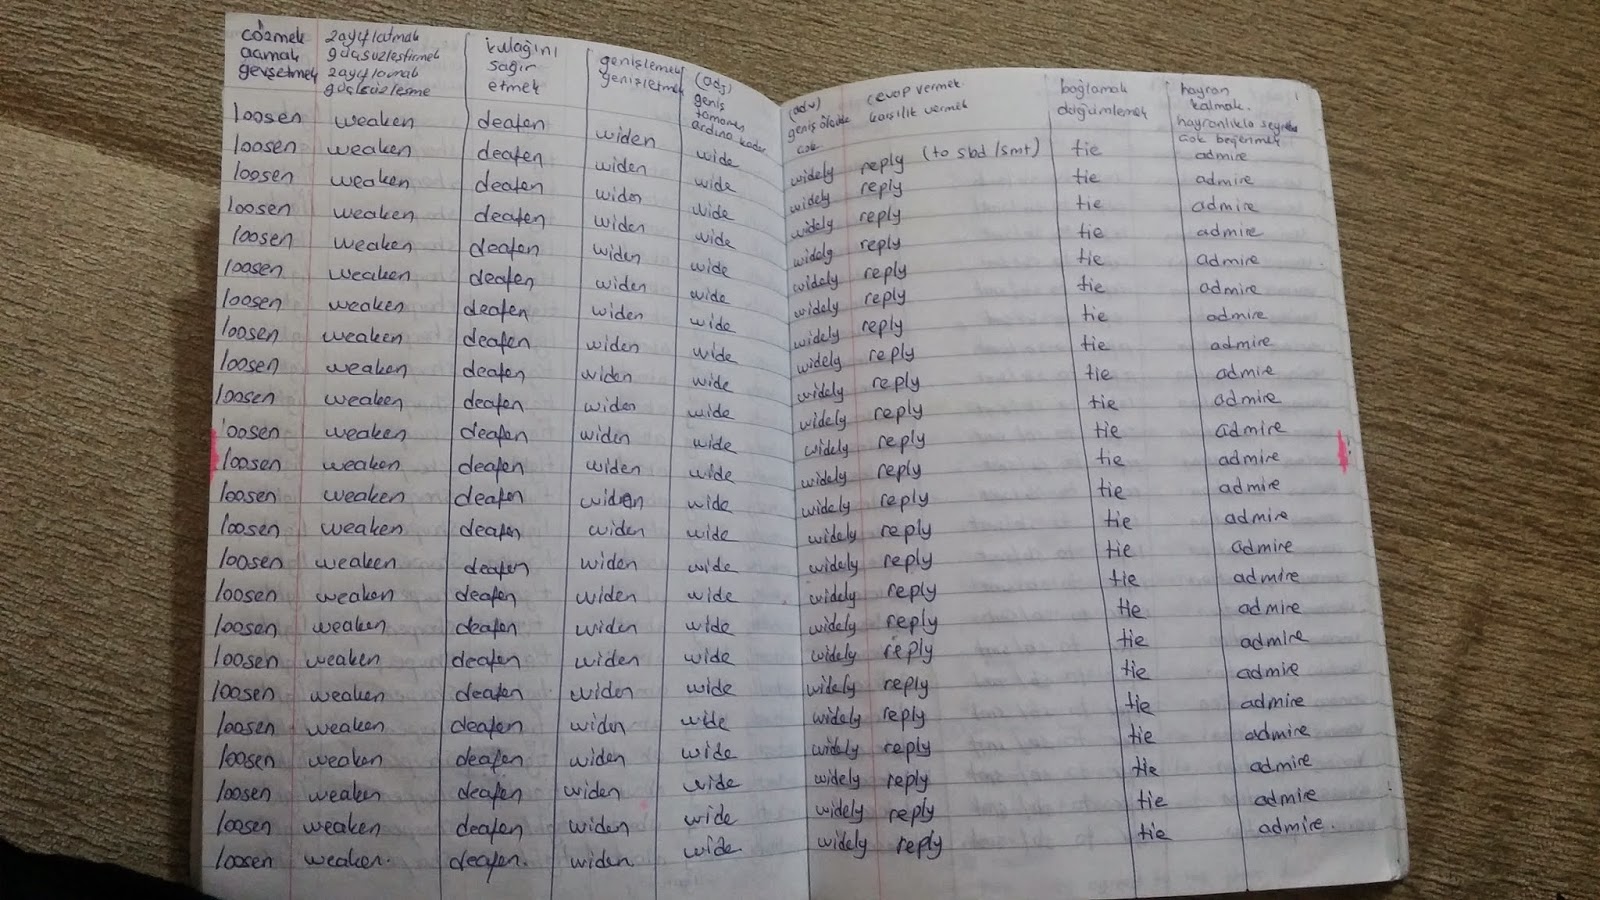 çözmek zayıflatmak kulağını genişlemek (adj)
açmak güçsüzleştirmek sağır genişletmek geniş
gevşetmek zayıflamak etmek tamamen
güçsüzleşme ardına kadar
loosen weaken deafen widen wide
loosen weaken deafen widen wide
loosen weaken deafen widen wide
loosen weaken deafen widen wide
loosen weaken deafen widen wide
loosen weaken deafen widen wide
loosen weaken deafen widen wide
loosen weaken deafen widen wide
loosen weaken deafen widen wide
loosen weaken deafen widen wide
loosen weaken deafen widen wide
loosen weaken deafen widen wide
loosen weaken deafen widen wide
loosen weaken deafen widen wide
loosen weaken deafen widen wide
loosen weaken deafen widen wide
loosen weaken deafen widen wide
loosen weaken deafen widen wide
loosen weaken deafen widen wide
loosen weaken deafen widen wide
loosen weaken deafen widen wide
loosen weaken deafen widen wide
loosen weaken deafen widen wide
loosen weaken. deafen. widen wide
(adv) cevap vermek bağlamak hayran
geniş ölçüde karşılık vermek düğümlemek kalmak.
çok hayranlıkla
çok beğenmek
widely reply (to sbd/smt) tie admire
widely reply tie admire
widely reply tie admire
widely reply tie admire
widely reply tie admire
widely reply tie admire
widely reply tie admire
widely reply tie admire
widely reply tie admire
widely reply tie admire
widely reply tie admire
widely reply tie admire
widely reply tie admire
widely reply tie admire
widely reply tie admire
widely reply tie admire
widely reply tie admire
widely reply tie admire
widely reply tie admire
widely reply tie admire
widely reply tie admire
widely reply tie admire
widely reply tie admire
widely reply tie admire.